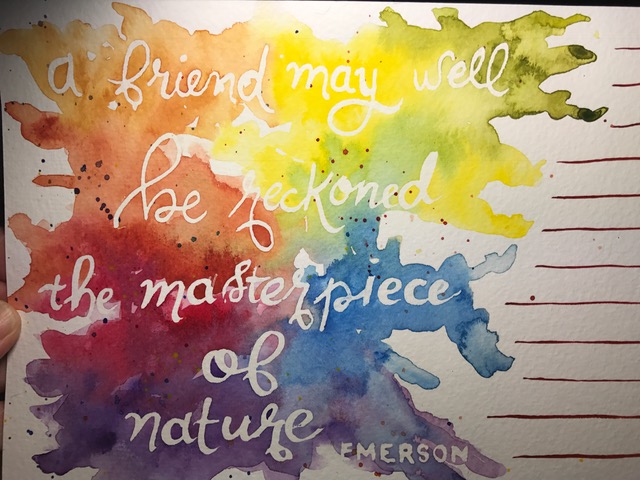 a friend may well
be reckoned
the masterpiece
of
nature
EMERSON